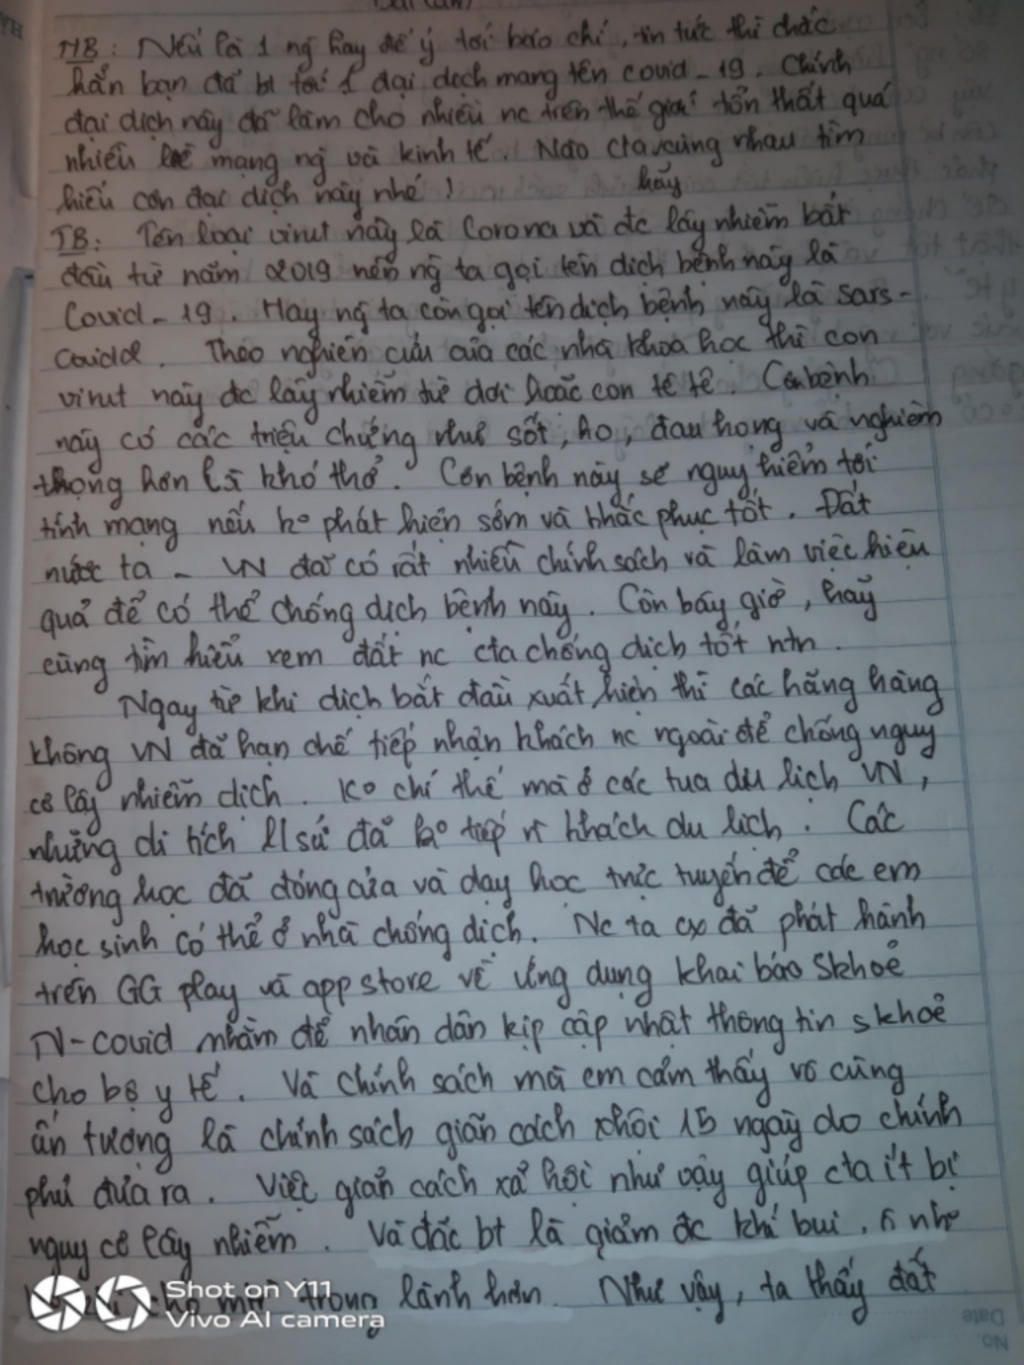 MB: Nếu là 1 ng hay để ý tới báo chí, tin tức thì chắc
hẳn bạn đã bt tới 1 đại dịch mang tên covid-19. Chính
đại dịch này đã làm cho nhiều nc trên thế giới tổn thất quá
nhiều mạng ng và kinh tế. Nào cta cùng nhau tìm
hãy
hiểu cơn đại dịch này nhé!
TB: Tên loại virut này là Corona và đc lây nhiễm bắt
đầu từ năm 2019 nên ng ta gọi tên dịch bệnh này là
Covid-19. Hay ng ta còn gọi tên dịch bệnh này là sars-
Theo nghiên cứu của các nhà khoa học thì con
virut này đc lây nhiễm từ dơi hoặc con tê tê. Cơn bệnh
này có các triệu chứng như sốt, ho, đau họng và nghiêm
trọng hơn là khó thở. Cơn bệnh này sẽ nguy hiểm tới
tính mạng nếu ko phát hiện sớm và khắc phục tốt. Đất
nước ta - VN đã có rất nhiều chính sách và làm việc hiệu
quả để có thể chống dịch bệnh này. Còn bây giờ, hãy
cùng tìm hiểu xem đất nc cta chống dịch tốt ntn.
Ngay từ khi dịch bắt đầu xuất hiện thì các hãng hàng
không VN đã hạn chế tiếp nhận khách nc ngoài để chống nguy
cơ lây nhiễm dịch. Ko chỉ thế mà ở các tua du lịch VN,
những di tích l/sử đã ko tiếp khách du lịch. Các
trường học đã đóng cửa và dạy học trực tuyến để các em
học sinh có thể ở nhà chống dịch. Nc ta cx đã phát hành
trên GG play và app store về ứng dụng khai báo skhoẻ
N-covid nhằm để nhân dân kịp cập nhật thông tin skhoẻ
cho bộ y tế. Và chính sách mà em cảm thấy vô cùng
ấn tượng là chính sách giãn cách xhội 15 ngày do chính
phủ đưa ra. Việc giãn cách xã hội như vậy giúp cta ít bị
nguy cơ lây nhiễm. Và đặc bt là giảm đc khí bụi,
trong lành hơn. Như vậy, ta thấy đất
Shot on Y11
Vivo AI camera
Date
No.